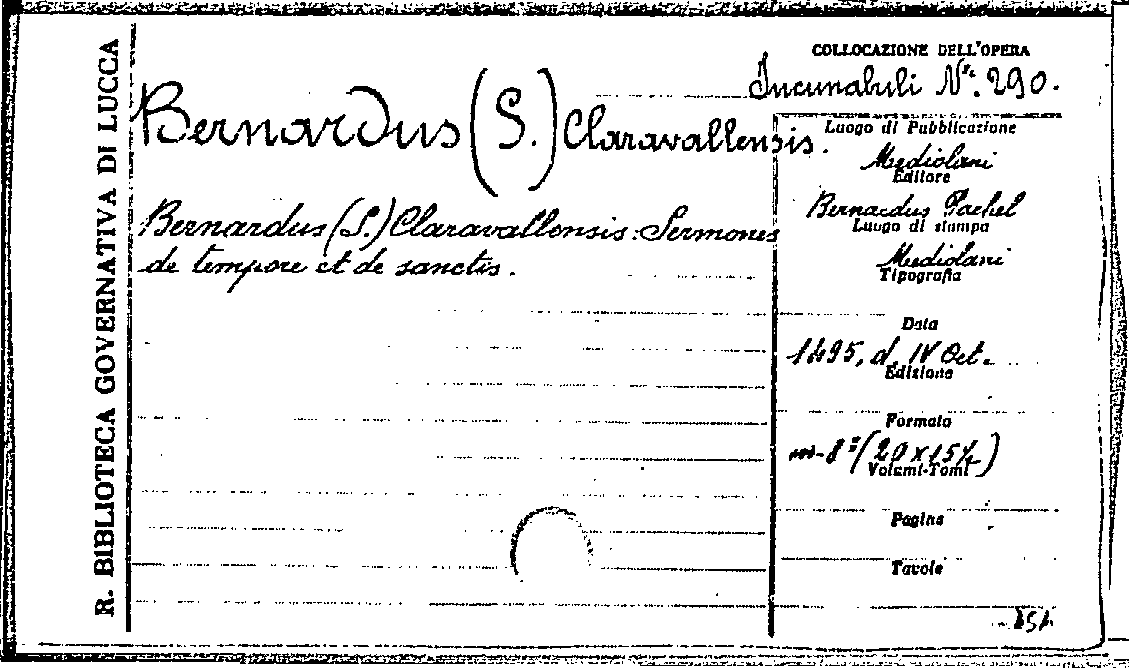 R. BIBLIOTECA GOVERNATIVA DI LUCCA
COLLOCAZIONE DELL'OPERA
Incunabuli N°. 290.
Bernardus (S.) Claravallensis.
Bernardus (S.) Claravallensis: Sermones
de tempore et de sanctis.
Luogo di Pubblicazione
Mediolani
Editore
Bernardus Pachel
Luogo di stampa
Mediolani
Tipografia
Data
1495, d. IV Oct.
Edizione
Formato
in-8° (20 x 15½)
Volumi-Tomi
Pagine
Tavole